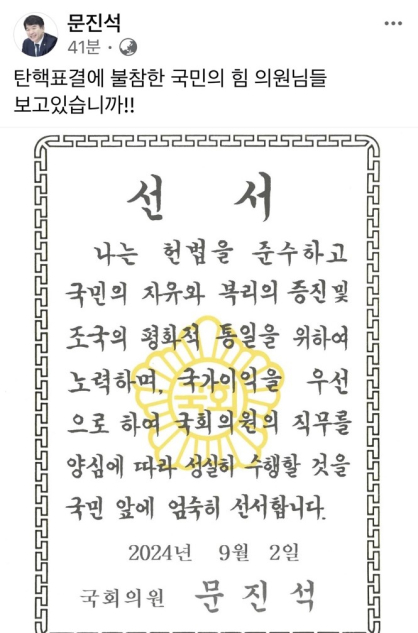 문진석
41분
탄핵표결에 불참한 국민의 힘 의원님들
보고있습니까!!
선 서
나는 헌법을 준수하고
국민의 자유와 복리의 증진 및
조국의 평화적 통일을 위하여
노력하며, 국가이익을 우선
으로 하여 국회의원의 직무를
양심에 따라 성실히 수행할 것을
국민 앞에 엄숙히 선서합니다.
국회
2024년 9월 2일
국회의원 문진석